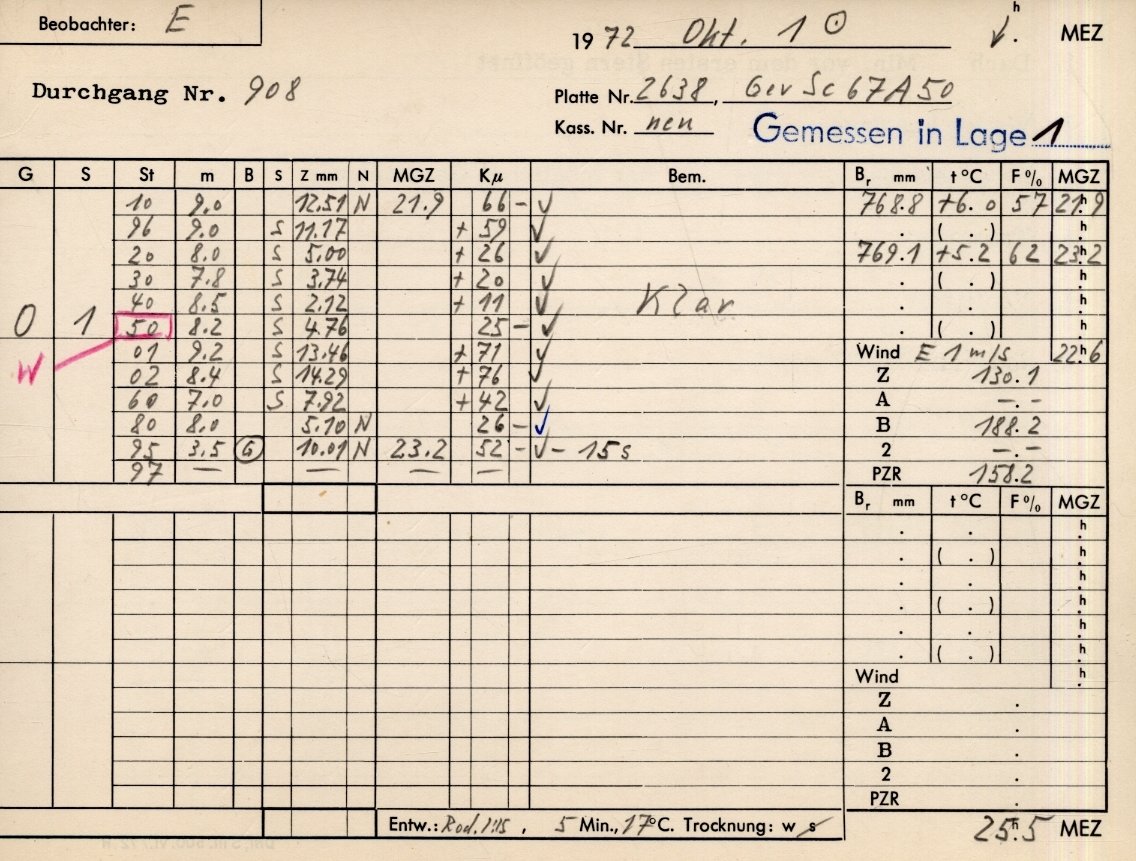 Beobachter: E
1972 Okt. 1 ⊙ h. MEZ
Durchgang Nr. 908
Platte Nr. 2638, Gev Sc 67A50
Kass. Nr. neu Gemessen in Lage 1
G S St m B S Z mm N MGZ Kμ Bem. Br mm t °C F % MGZ
10 9.0 12.51 N 21.9 66 – ✓ 768.8 +6.0 57 21h9
96 9.0 S 11.17 + 59 ✓ . ( . ) h.
20 8.0 S 5.00 + 26 ✓ 769.1 +5.2 62 23h2
30 7.8 S 3.74 + 20 ✓ . ( . ) h.
40 8.5 S 2.12 + 11 ✓ Klar . . h.
0 1 50 8.2 S 4.76 25 – ✓ . ( . ) h.
W 01 9.2 S 13.46 + 71 ✓ Wind E 1 m/s 22h6
02 8.4 S 14.29 + 76 ✓ Z 130.1
60 7.0 S 7.92 + 42 ✓ A –.–
80 8.0 5.10 N 26 – ✓ B 188.2
95 3.5 G 10.01 N 23.2 52 – ✓ – 15s 2 –.–
97 — — — — PZR 158.2
Br mm t °C F % MGZ
. . h.
. ( . ) h.
. . h.
. ( . ) h.
. . h.
. ( . ) h.
Wind h.
Z .
A .
B .
2 .
PZR .
Entw.: Rod. 1:15, 5 Min., 17°C. Trocknung: w s 25h.5 MEZ